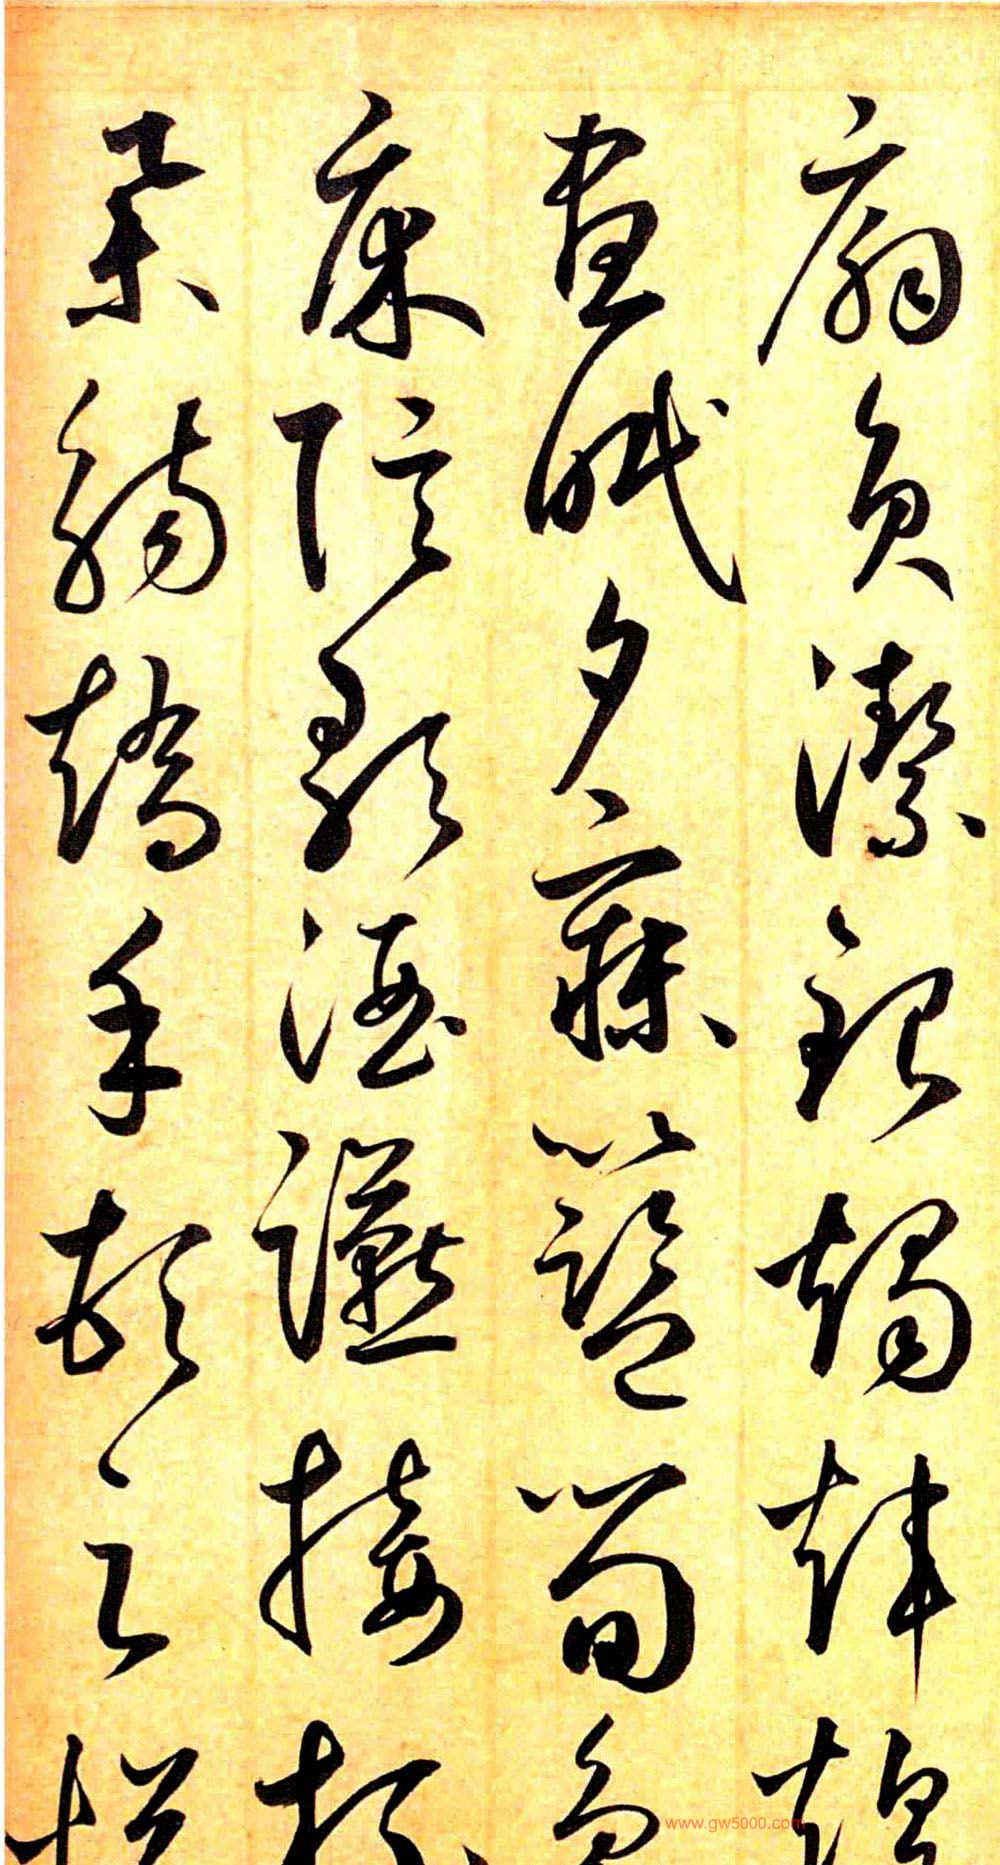 扇員潔銀燭煒煌
晝眠夕寐籃筍象
床弦歌酒讌接杯
舉觴矯手頓足悅
www.gw5000.com